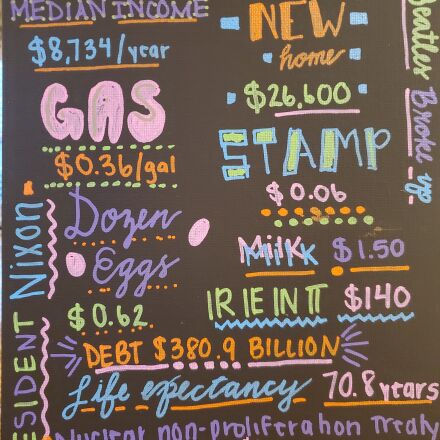 MEDIAN INCOME
$8,734/year
NEW
home
$26,600
GAS
$0.36/gal
STAMP
$0.06
Dozen
Eggs
$0.62
Milk $1.50
RENT $140
DEBT $380.9 BILLION
Life expectancy 70.8 years
Nuclear non-proliferation Treaty
ESIDENT Nixon
Beatles Broke up